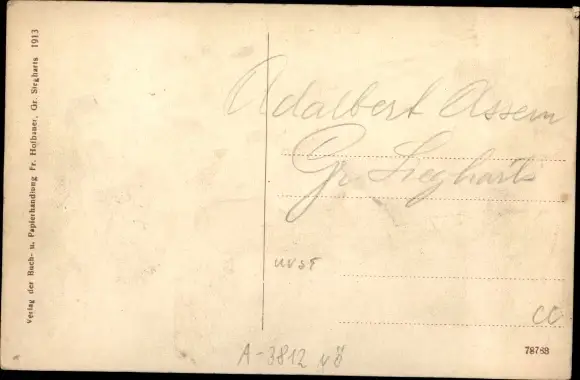 Verlag der Buch- u. Papierhandlung Fr. Hofbauer, Gr. Siegharts 1913
Adalbert Assem
Gr. Siegharts
uvst
CC
A-3812 vö
78768